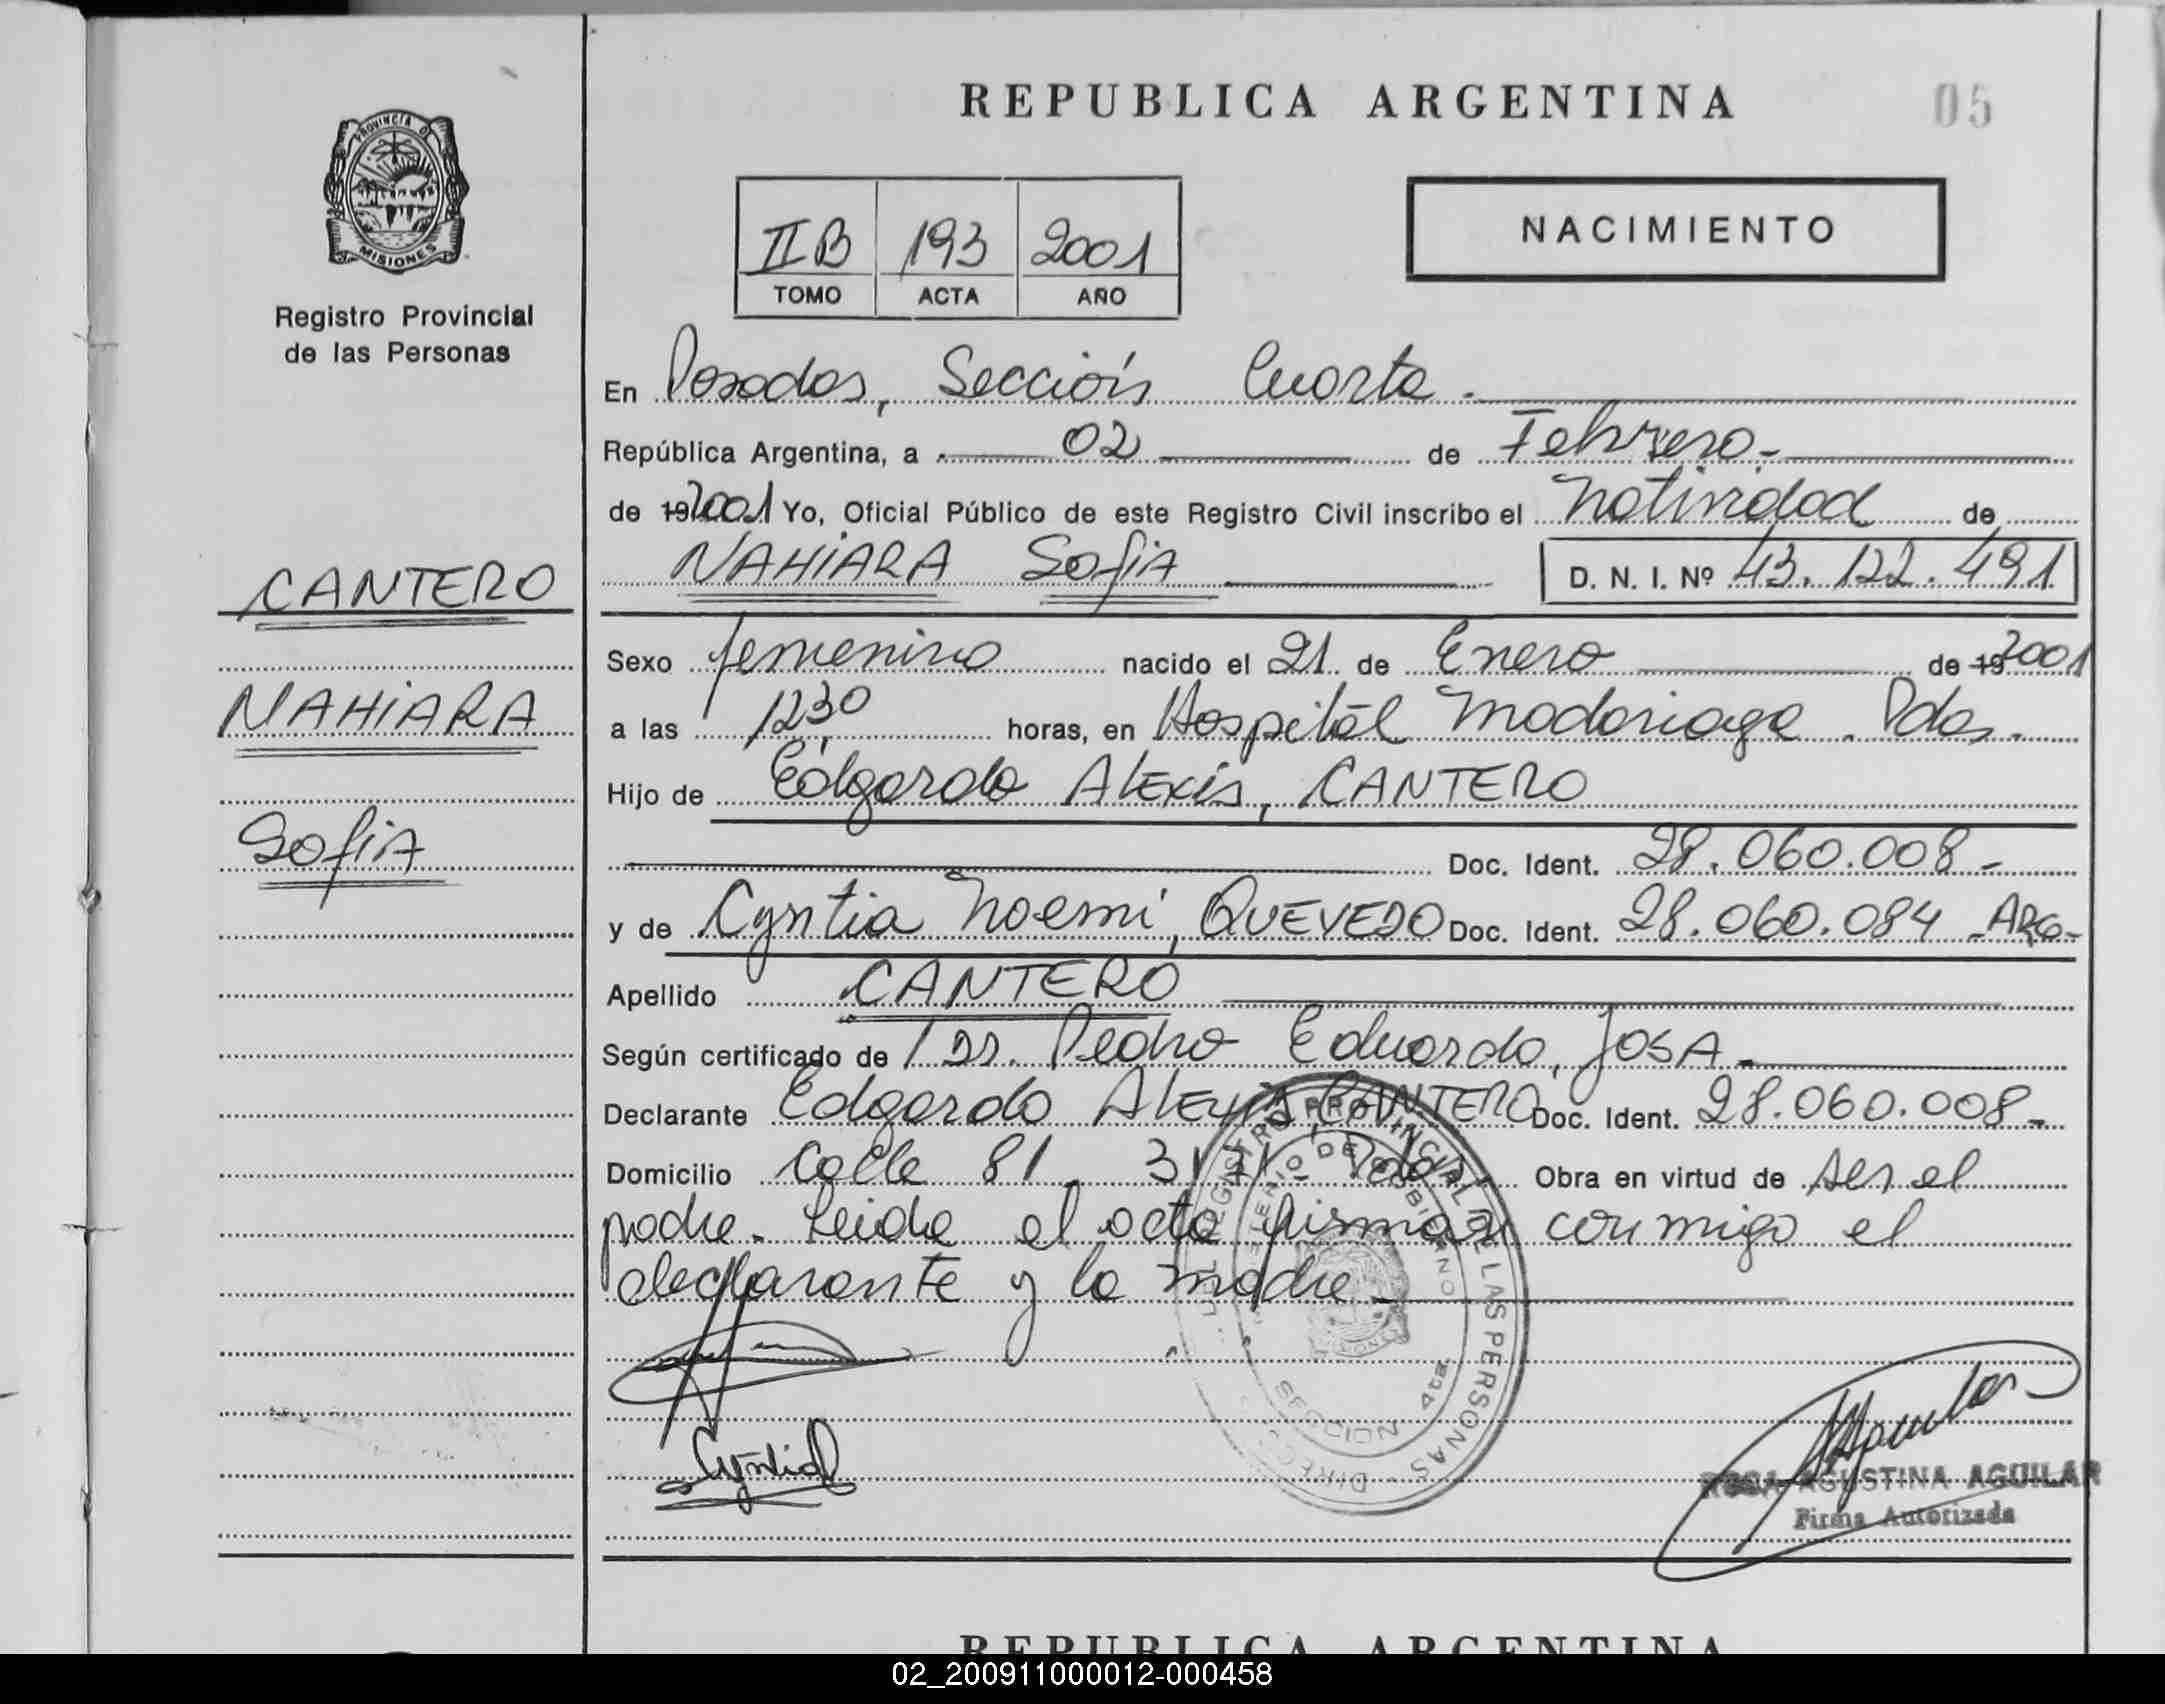 REPUBLICA ARGENTINA
05
PROVINCIA D
MISIONES
Registro Provincial
de las Personas
II B 193 2001
TOMO ACTA AÑO
NACIMIENTO
En Posadas, Sección Cuarta.
República Argentina, a 02 de Febrero.-
de 19 2001 Yo, Oficial Público de este Registro Civil inscribo el Natividad de
NAHIARA Sofia D. N. I. Nº 43.122.491
CANTERO
NAHIARA
Sofia
Sexo femenino nacido el 21 de Enero de 19 2001
a las 12,30 horas, en Hospital Madariaga. Pdas.
Hijo de Edgardo Alexis, CANTERO
Doc. Ident. 28.060.008-
y de Cyntia Noemi, QUEVEDO Doc. Ident. 28.060.084 -ARG-
Apellido CANTERO
Según certificado de Dr. Pedro Eduardo, JOSA-
Declarante Edgardo Alexis, CANTERO Doc. Ident. 28.060.008-
Domicilio Calle 81 Pdas. Obra en virtud de ser el
padre. Leida el acta firman conmigo el
declarante y la madre-
REGISTRO PROVINCIAL DE LAS PERSONAS
MINISTERIO DE GOBIERNO
SECCION 4ta
Cyntia
ROSA AGUSTINA AGUILAR
Firma Autorizada
REPUBLICA ARGENTINA
02_200911000012-000458